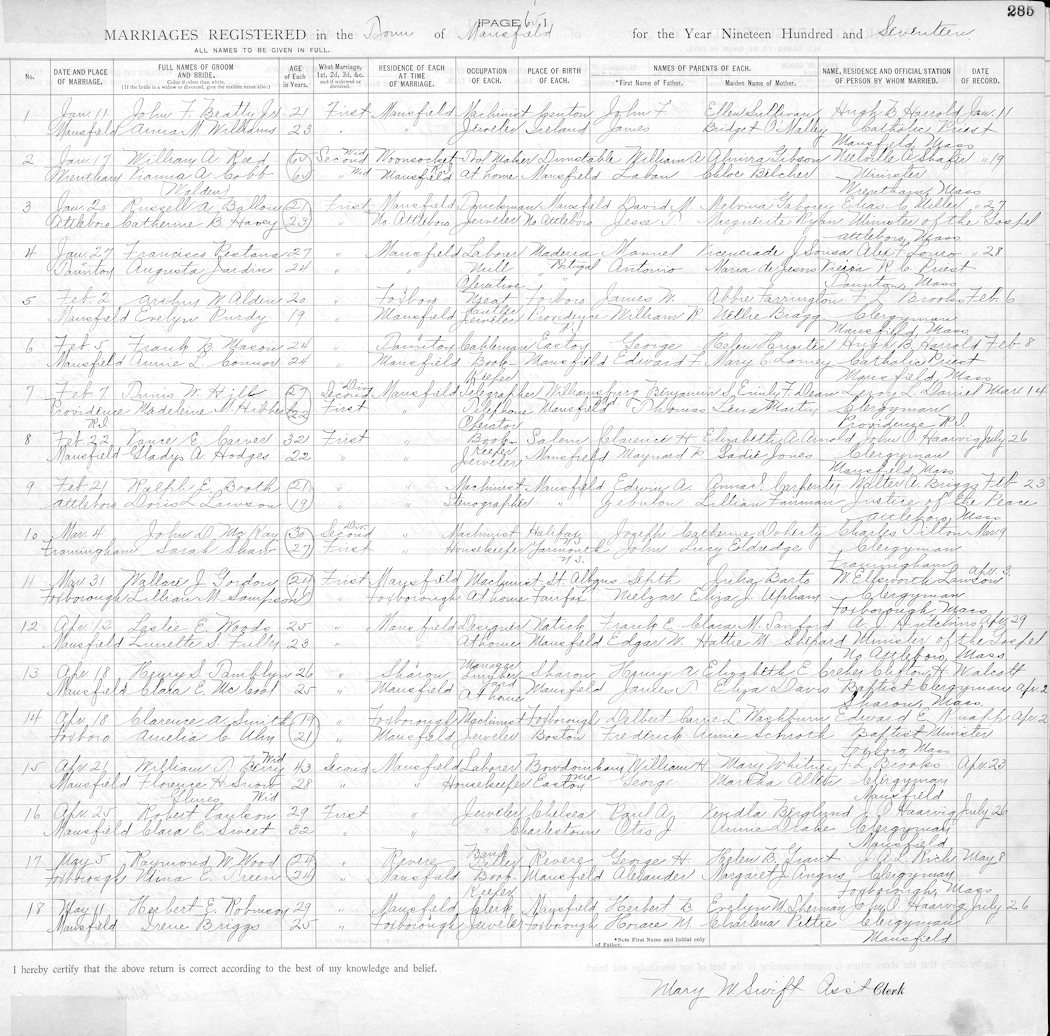 285
[PAGE 65]
MARRIAGES REGISTERED in the Town of Mansfield for the Year Nineteen Hundred and Seventeen
ALL NAMES TO BE GIVEN IN FULL.
No. DATE AND PLACE OF MARRIAGE. FULL NAMES OF GROOM AND BRIDE. Color if other than white. (If the bride is a widow or divorced, give the maiden name also.) AGE of Each in Years. What Marriage, 1st, 2d, 3d, &c. and if widowed or divorced. RESIDENCE OF EACH AT TIME OF MARRIAGE. OCCUPATION OF EACH. PLACE OF BIRTH OF EACH. NAMES OF PARENTS OF EACH. *First Name of Father. Maiden Name of Mother. NAME, RESIDENCE AND OFFICIAL STATION OF PERSON BY WHOM MARRIED. DATE OF RECORD.
1 Jan 11 John F Beatty Jr 21 First Mansfield Machinist Canton John F Ellen Sullivan Hugh B Harrold Jan. 11
Mansfield Anna M Williams 23 " " Jeweler Ireland James Bridget O Malley Catholic Priest
Mansfield Mass
2 Jan 17 William A Reed Second Wid Woonsocket Tool Maker Dunstable William A Almira Gibson Melville A Shafer " 19
Wrentham Vianna A Cobb 65 " Wid Mansfield At home Mansfield Laban Chloe Belcher Minister
Wrentham, Mass
3 Jan 20 Russell A Ballou 21 First Mansfield Truckman Mansfield David M. Elias C Miller " 27
Attleboro Catherine B Harvey 23 " No Attleboro Jeweler No Attleboro Jesse T Marguerite Ryan Minister of the Gospel
Attleboro, Mass
4 Jan. 27 Francisco Pestana 27 " Mansfield Labour Maderia Manuel J Sousa " 28
Taunton Augusta Jardin 24 " " Mill Portugal Antonio Maria de Jesus Vieira R. C. Priest
Operative Taunton, Mass
5 Feb. 2 Arthur W Alden 20 " Foxboro Meat Cutter Foxboro James W. Abbie Farrington F. L Brooks Feb. 6
Mansfield Evelyn Purdy 19 " Mansfield Jeweler Providence R.I William R Nellie Bragg Clergyman
Mansfield Mass
6 Feb 5 Frank B Mason 24 " Taunton Cableman Easton George Helen Hunter Hugh B Harrold Feb 8
Mansfield Annie L Connor 24 " Mansfield Book-Keeper Mansfield Edward F. Mary E Lowney Catholic Priest
Mansfield, Mass
7 Feb 7 W. Hill 27 Second Div Mansfield Telegrapher Williamsburg Benjamin S Emily F. Dean Leroy L Daniel Mar. 14
Providence R.I Madeleine M. Hibbert 22 First " Telephone Operator Mansfield Thomas Lena Martin Clergyman
Providence R.I.
8 Feb 22 Vance E Carver 32 First " Book-Keeper Salem Clarence H Elizabeth A Arnold John O Haarvig July 26
Mansfield Gladys A Hodges 22 " " Jeweler Mansfield Maynard Sadie Jones Clergyman
Mansfield, Mass
9 Feb 21 Ralph E Booth 21 " " Machinist Mansfield Edwin A. Anna S. Carpenter Walter A. Briggs Feb 23
Attleboro Doris L Lawson 19 " " Stenographer " Zebulon Lillian Fairman Justice of the Peace
Attleboro, Mass
10 Mar. 4 John D. McKay 30 Second Div. " Machinist Halifax Joseph Catherine Doherty Charles Tilton
Framingham Sarah Shaw 27 First " Housekeeper Yarmouth N.S. John Lucy Eldredge Clergyman
Framingham
11 Mar 31 Wallace J Gordon 24 First Mansfield Machinist St Albans Seth Julia Barto W Ellsworth Lawson Apr 3.
Foxborough Lillian M Sampson " Foxborough At home Fairfax Melzar Eliza J Upham Clergyman
Foxborough Mass
12 Apr 12 Leslie E. Woods 25 " Mansfield Designer Natick Frank E Clara M. Sanford A. J Hutchins Apr 29
Mansfield Linette S Fuller 23 " " At home Mansfield Edgar W Hattie M Shepard Minister of the Gospel
No Attleboro, Mass
13 Apr 18 Henry S Tamblyn 26 " Sharon Manager Lumber Yard Sharon Henry A. Elizabeth E Creber Clifton H Walcott
Mansfield Clara E. McCool 25 " Mansfield At home Mansfield James T Eliza Davis Baptist Clergyman Apr 2
Sharon, Mass.
14 Apr 18 Clarence A. Smith 19 " Foxborough Machinist Foxborough Delbert Carrie L. Washburn Edward E Knapp Apr 2
Foxboro Amelia C Uhn 21 " Mansfield Jeweler Boston Frederick Annie Schrock Baptist Minister
Foxboro, Mass
15 Apr 21 William T. Berry Wid 43 Second Mansfield Laborer Bowdoinham Me William H Mary Whitney F. L Brooks Apr 23
Mansfield Florence H Snow 28 " Housekeeper Easton George Martha Allen Clergyman
Wid Mansfield
16 Apr 25 Robert Paulson 29 First " Jeweler Chelsea Paul A Vendla Berglund J O Haarvig July 26
Mansfield Clara E Sweet 32 " " " Charlestown Otis J Annie Drake Clergyman
Mansfield
17 May 5 Raymond W. Wood 24 " Revere Bank Teller Revere George H. Helen B. Grant J. A. L Rich May 8
Foxborough Edna E Treen 24 " Mansfield Book-Keeper Mansfield Alexander Margaret J. Angus Clergyman
Foxborough, Mass
18 May 11 Herbert E. Robinson 29 " Mansfield Clerk Mansfield Herbert B Evelyn W Sherman John O Haarvig July 26
Mansfield Irene Briggs 25 " Foxborough Jeweler Foxborough Horace M Charlena Pettie Clergyman
Mansfield
*Note First Name and Initial only of Father.
I hereby certify that the above return is correct according to the best of my knowledge and belief.
Mary W Swift Asst Clerk